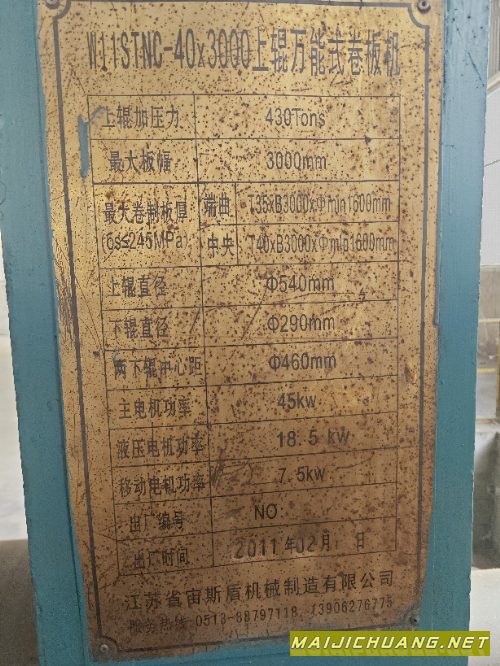 W11STNC-40x3000上辊万能式卷板机
上辊加压力 430Tons
最大板幅 3000mm
最大卷制板厚 端曲 T35xB3000xΦmin1600mm
(σs≤245MPa) 中央 T40xB3000xΦmin1600mm
上辊直径 Φ540mm
下辊直径 Φ290mm
两下辊中心距 Φ460mm
主电机功率 45kw
液压电机功率 18.5 kw
移动电机功率 7.5kw
出厂编号 NO
出厂时间 2011年02月 日
江苏省宙斯盾机械制造有限公司
服务热线 0513-88797118 13906276775
MAIJICHUANG.NET